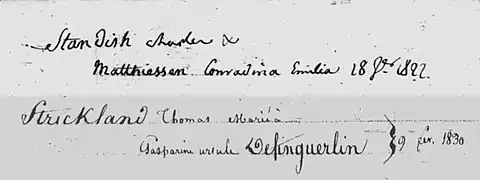 Standish Charles &
Matthiessen Conradina Emilia 18 8bre 1822.
Strickland Thomas Maria
Gasparine ursule Definguerlin } 9 fév. 1830